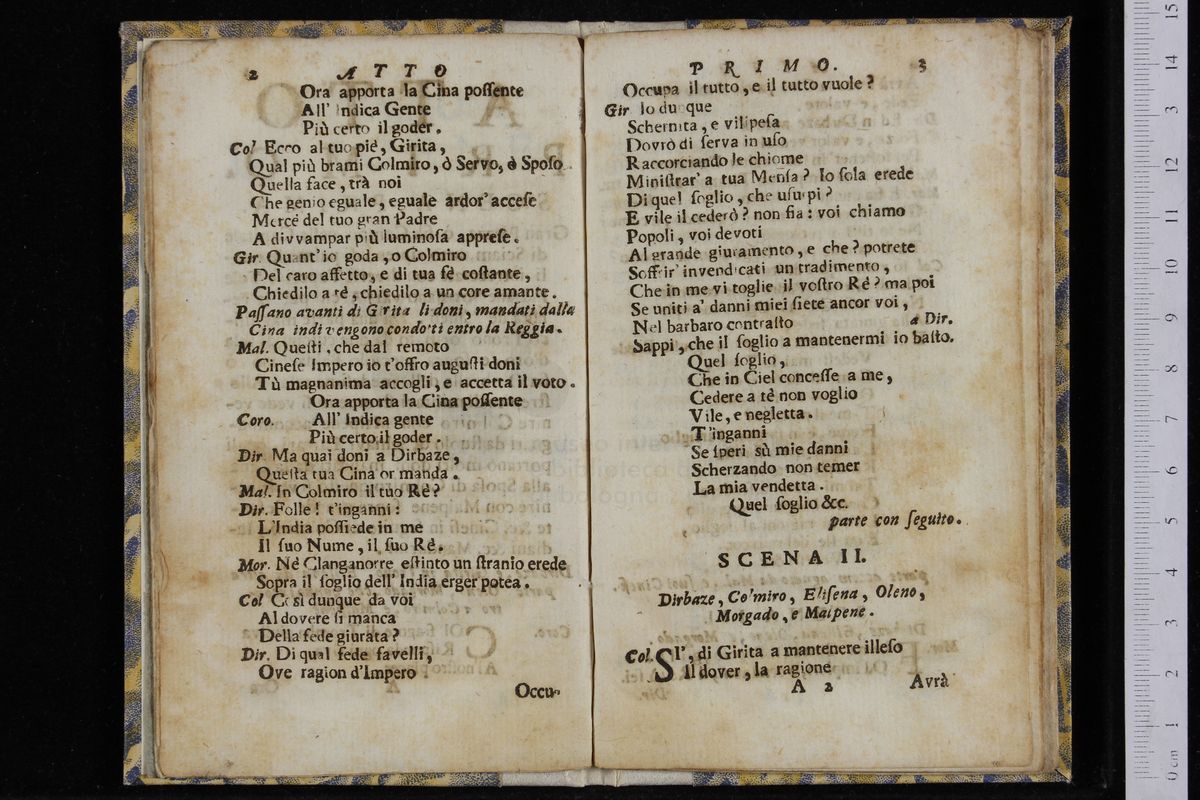 2 ATTO
Ora apporta la Cina poſſente
All' Indica Gente
Più certo il goder.
Col Ecco al tuo piè, Girita,
Qual più brami Colmiro, ò Servo, ò Spoſo.
Quella face, trà noi
Che genio eguale, eguale ardor' acceſe
Mercè del tuo gran Padre
A divvampar più luminoſa appreſe.
Gir Quant'io goda, o Colmiro
Del caro affetto, e di tua fè coſtante,
Chiedilo a tè, chiedilo a un core amante.
Paſſano avanti di Girita li doni, mandati dalla
Cina indi vengono condotti entro la Reggia.
Mal. Queſti, che dal remoto
Cineſe Impero io t'offro auguſti doni
Tù magnanima accogli, e accetta il voto.
Ora apporta la Cina poſſente
Coro. All' Indica gente
Più certo il goder.
Dir Ma quai doni a Dirbaze,
Queſta tua Cina or manda.
Mal. In Colmiro il tuo Rè?
Dir. Folle! t'inganni:
L'India poſſiede in me
Il ſuo Nume, il ſuo Rè.
Mor. Nè Clanganorre eſtinto un ſtranio erede
Sopra il ſoglio dell' India erger potea.
Col Così dunque da voi
Al dovere ſi manca
Della fede giurata?
Dir. Di qual fede favelli,
Ove ragion d'Impero
Occu-
PRIMO. 3
Occupa il tutto, e il tutto vuole?
Gir Io dunque
Schernita, e vilipeſa
Dovrò di ſerva in uſo
Raccorciando le chiome
Miniſtrar' a tua Menſa? Io ſola erede
Di quel ſoglio, che uſurpi?
E vile il cederò? non fia: voi chiamo
Popoli, voi devoti
Al grande giuramento, e che? potrete
Soffrir' invendicati un tradimento,
Che in me vi toglie il voſtro Rè? ma poi
Se uniti a' danni miei ſiete ancor voi,
Nel barbaro contraſto a Dir.
Sappi, che il ſoglio a mantenermi io baſto.
Quel ſoglio,
Che in Ciel conceſſe a me,
Cedere a tè non voglio
Vile, e negletta.
T'inganni
Se ſperi sù mie danni
Scherzando non temer
La mia vendetta.
Quel ſoglio &c.
parte con ſeguito.
SCENA II.
Dirbaze, Colmiro, Eliſena, Oleno,
Morgado, e Malpene.
Col. SI', di Girita a mantenere illeſo
Il dover, la ragione
A 2 Avrà